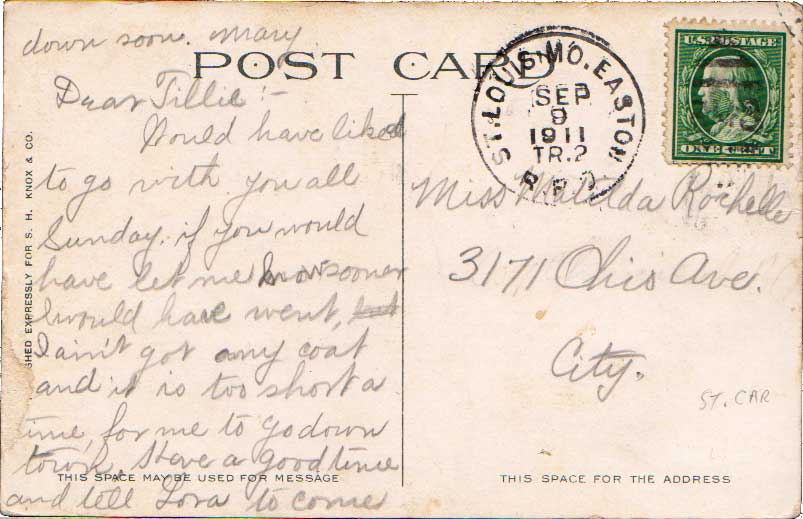 down soon. Mary
POST CARD
Dear Tillie:-
Would have liked
to go with you all
Sunday. if you would
have let me know sooner
I would have went,
I ain't got any coat
and it is too short a
time, for me to go down
town. Have a good time
and tell Lora to come
SHED EXPRESSLY FOR S. H. KNOX & CO.
THIS SPACE MAY BE USED FOR MESSAGE
ST. LOUIS, MO. EASTON
SEP
9
1911
TR.2
R P O
U.S. POSTAGE
ONE CENT
Miss Matilda Rochelle
3171 Ohio Ave.
City.
ST. CAR
THIS SPACE FOR THE ADDRESS